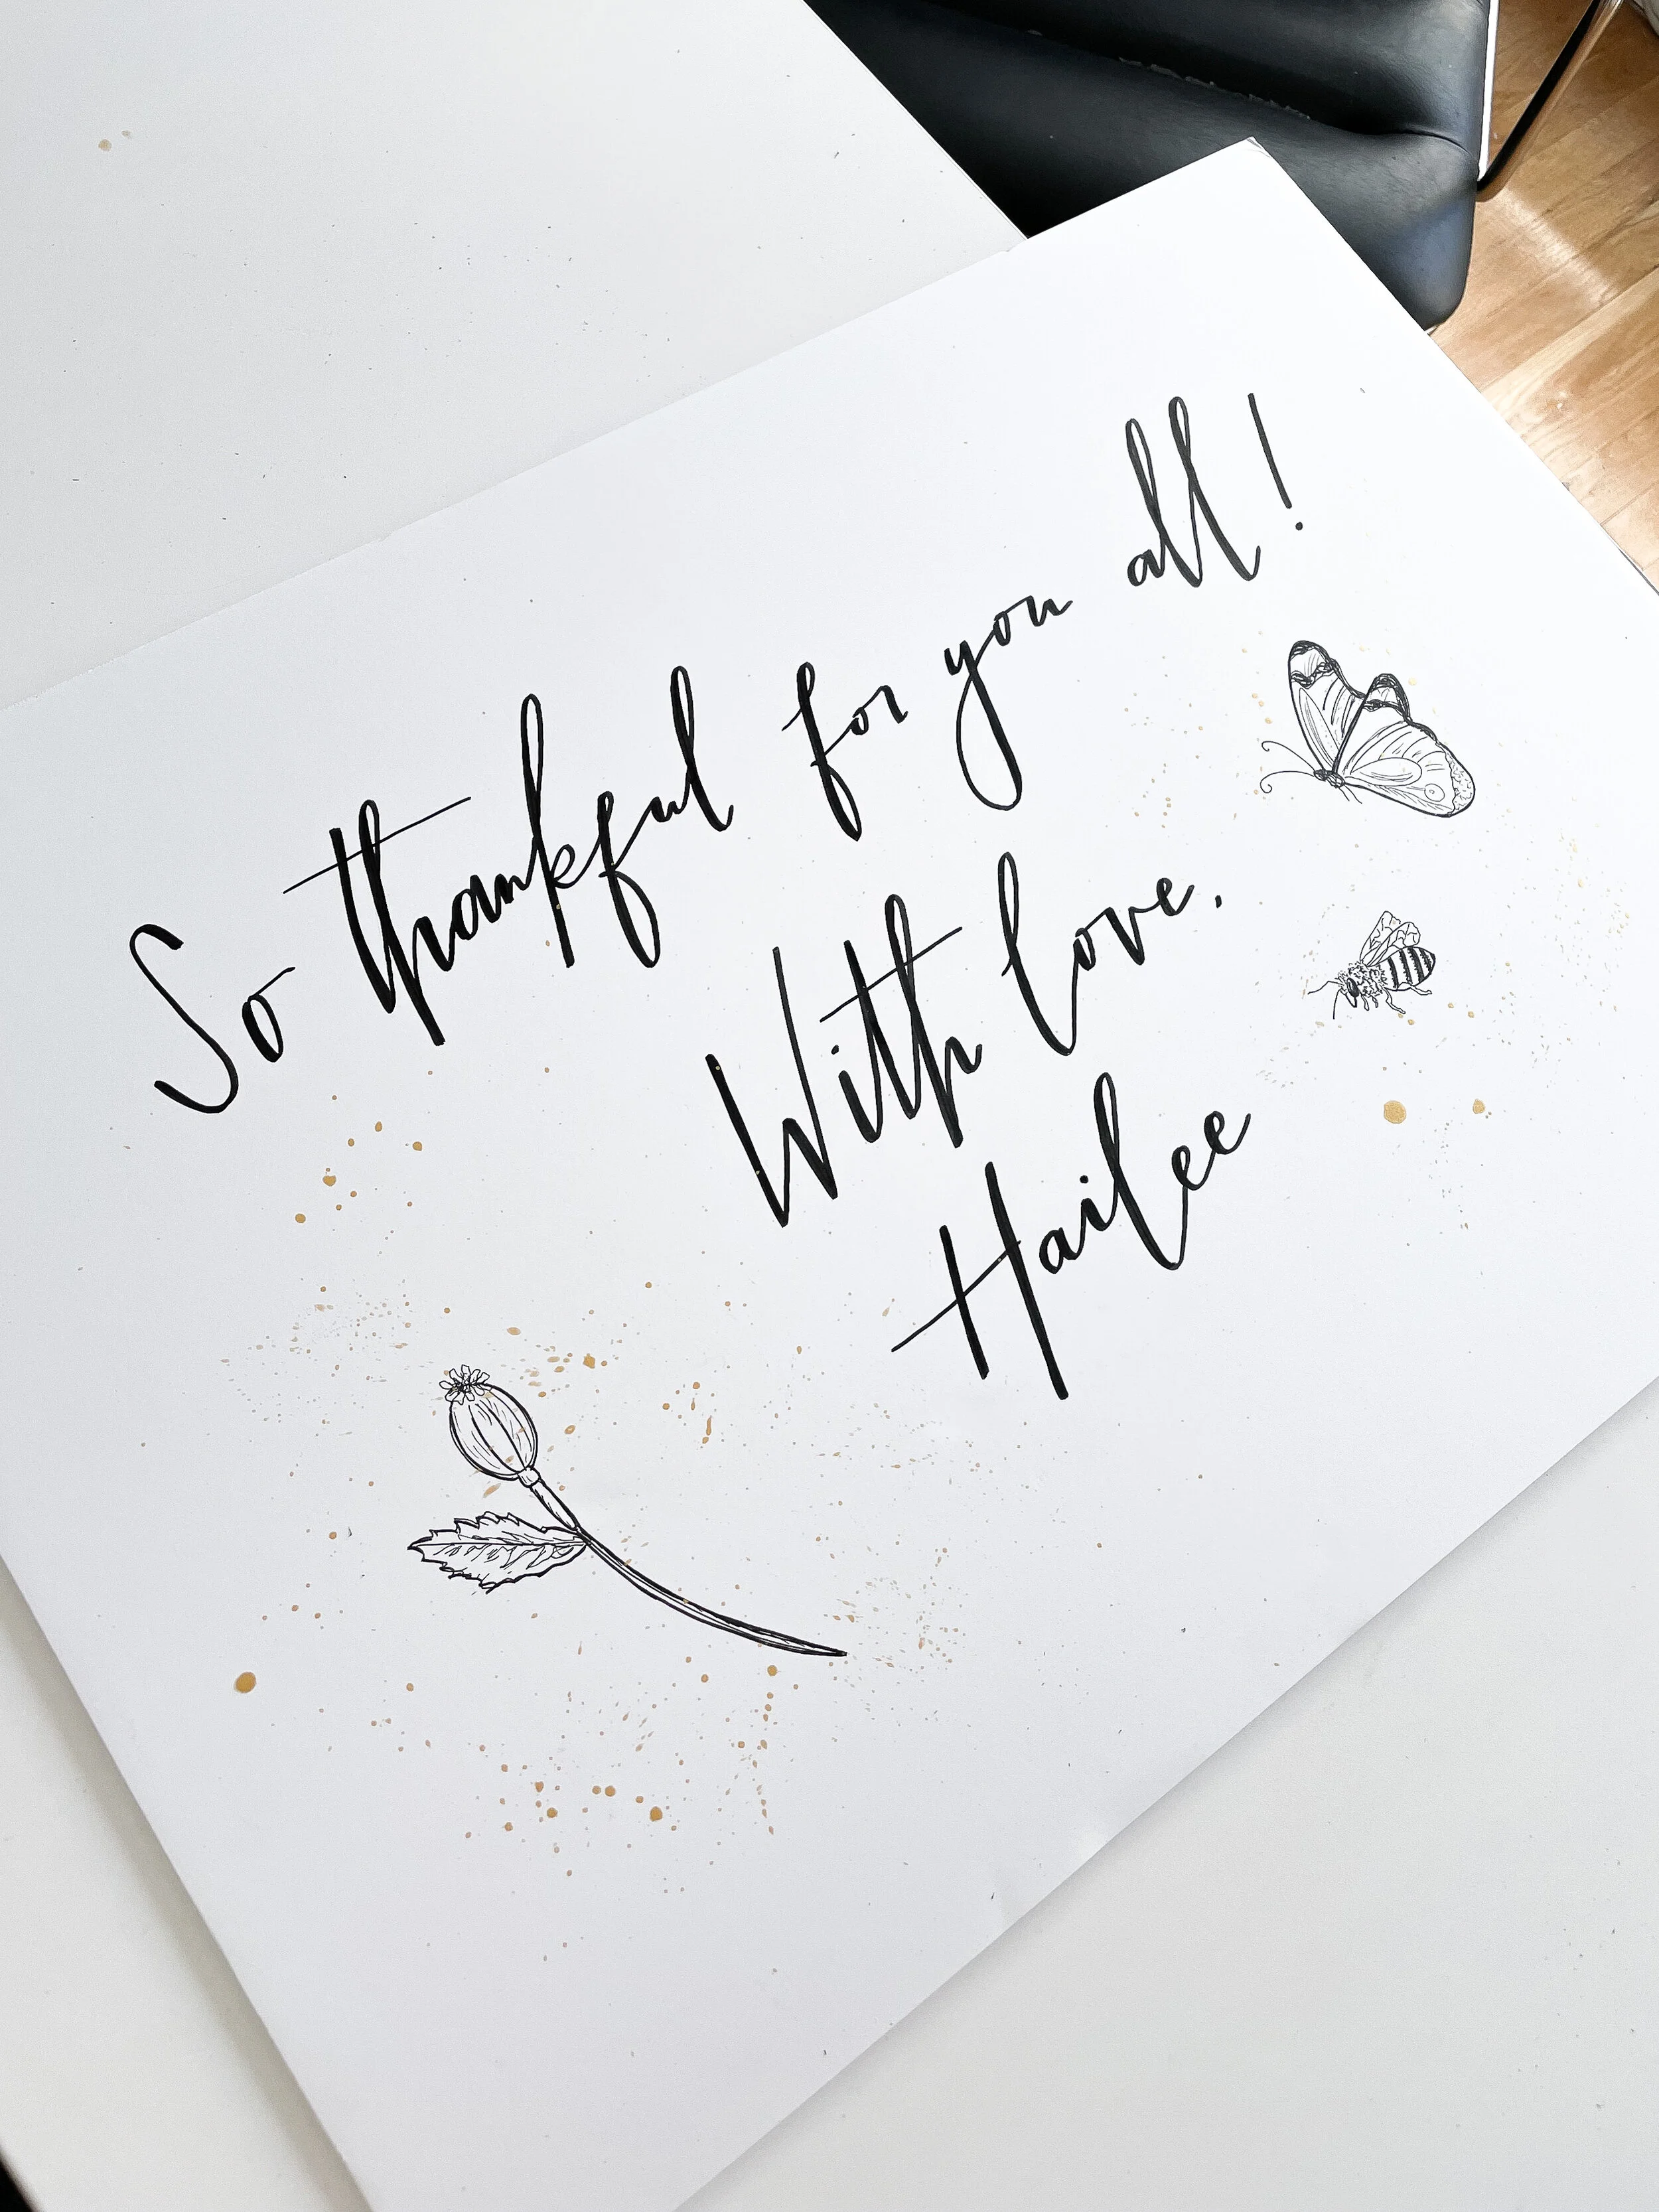 So thankful for you all!
With love.
Hailee